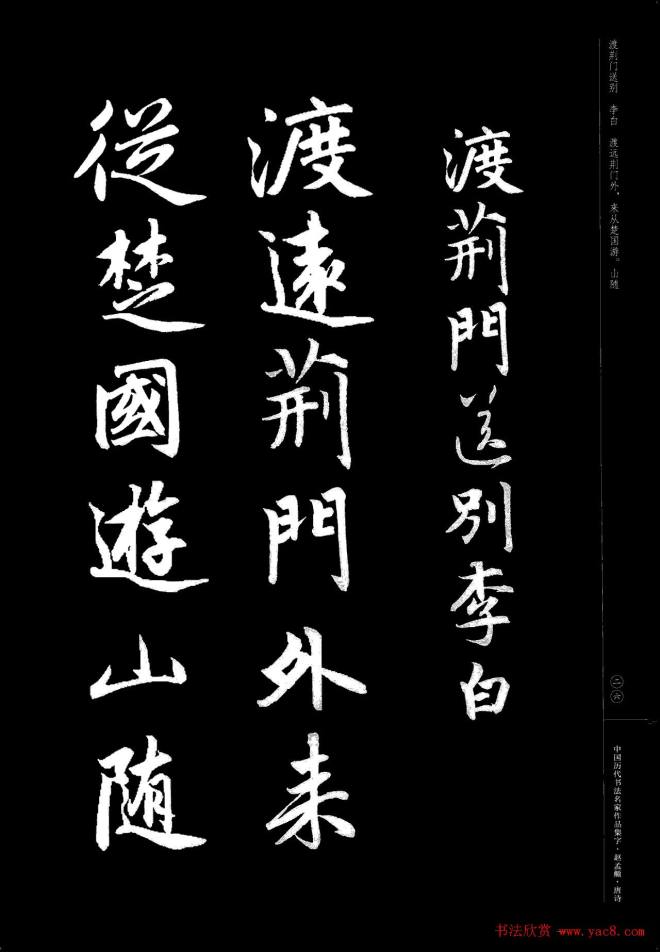 渡荆门送别 李白 渡远荆门外，来从楚国游。山随
二六
中国历代书法名家作品集字·赵孟頫·唐诗
渡荆門送別李白
渡遠荆門外来
從楚國遊山随
书法欣赏→www.yac8.com